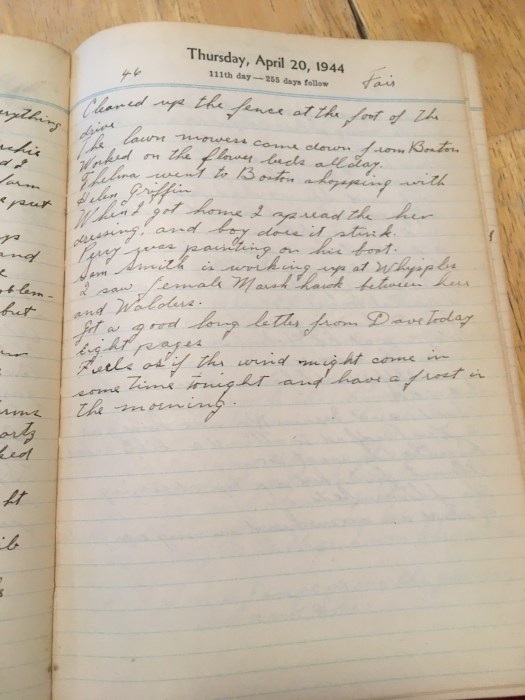 Thursday, April 20, 1944
111th day — 255 days follow
46
Fair
Cleaned up the fence at the foot of the
drive
The lawn mowers came down from Boston
Worked on the flower beds all day.
Thelma went to Boston shopping with
Helen Griffin
When I got home I spread the hen
dressing, and boy does it stink.
Perry was painting on his boat.
Sam Smith is working up at Whipples
I saw female Marsh hawk between here
and Walders.
Got a good long letter from Dave today
Eight pages
Feels as if the wind might come in
some time tonight and have a frost in
the morning.
erything
d I
farm
e put
and
oblem-
but
arms
artz
ked
ht